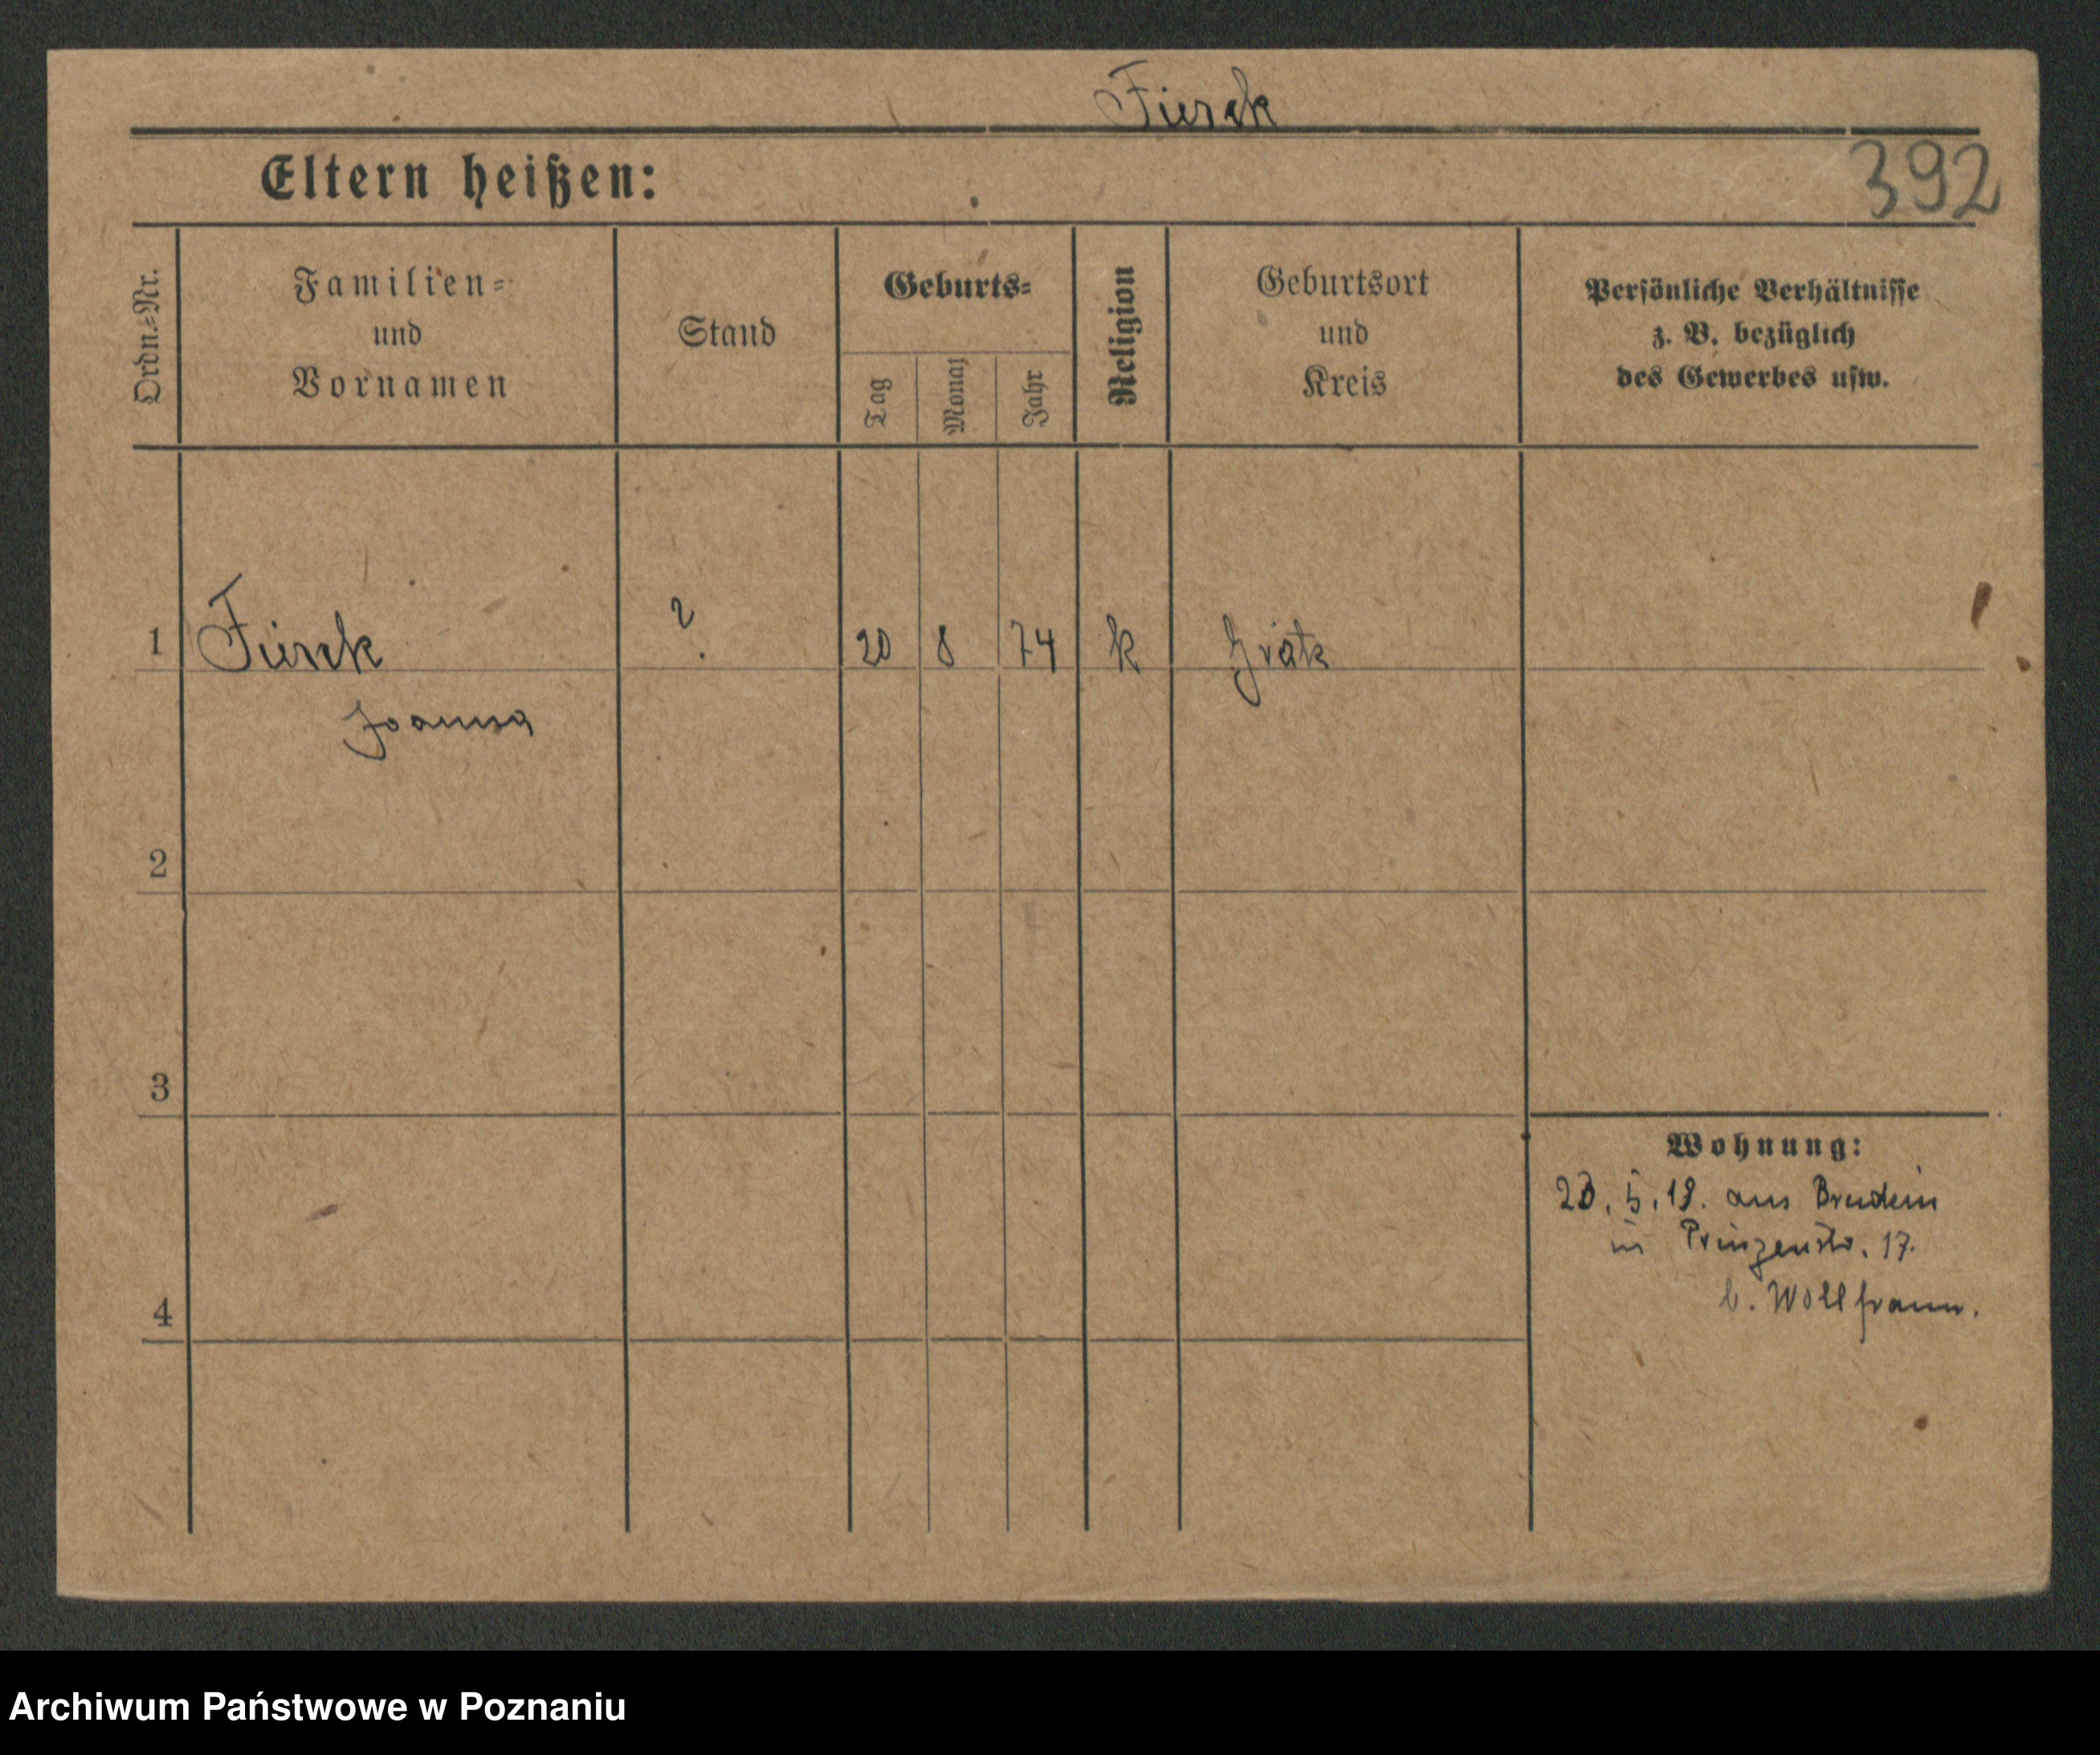 Fiesek
Eltern heißen:
392
Ordn.-Nr.
Familien-
und
Vornamen
Stand
Geburts-
Tag
Monat
Jahr
Religion
Geburtsort
und
Kreis
Persönliche Verhältnisse
z. B. bezüglich
des Gewerbes usw.
1
?
20
8
74
k
Grätz
Joanna
2
3
Wohnung:
20. 5. 19. aus
in Prinzenstr. 17.
b. Wollframm.
4
Archiwum Państwowe w Poznaniu